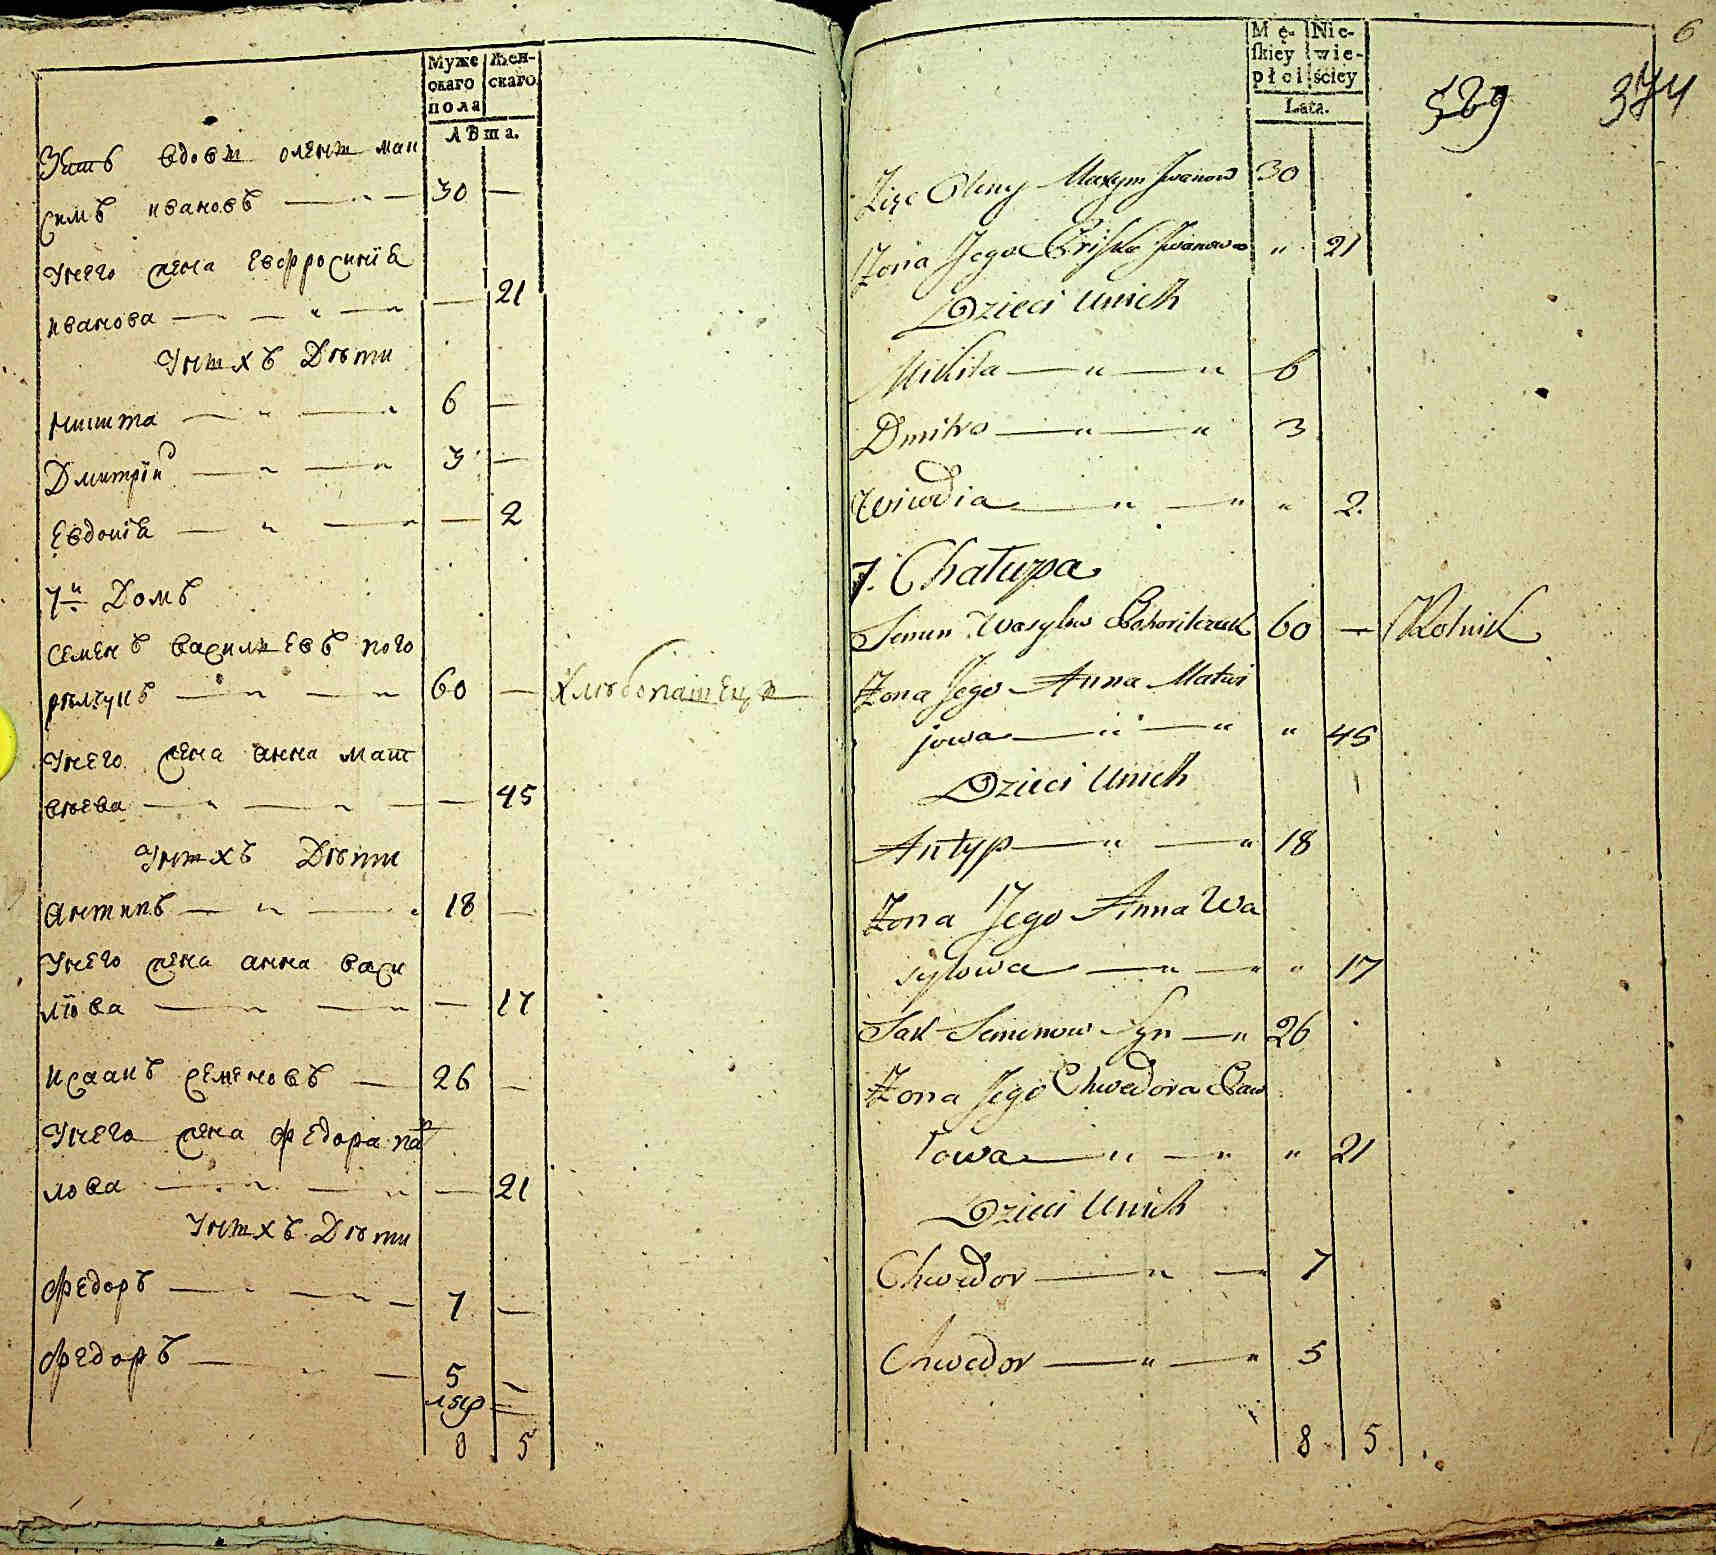 Муже
скаго
пола
Жен-
скаго
Лѣта.
Зять вдовы олены мак
симъ ивановъ — 30 —
Унего жена Евфросинїѧ
иванова — „ — — 21
Унихъ Дѣти
Никита — „ — „ 6 —
Дмитрїй — „ — „ 3 —
Евдокїѧ — „ — „ — 2
7й Домъ
Семенъ василиевъ пого
рѣлчукъ — „ — „ 60 — Хлѣбопашецъ
Унего жена анна мат
вѣева — „ — „ — — 45
Унихъ Дѣти
антипъ — „ — „ 18 —
Унего жена анна васи
лїова — „ — „ — 17
исаакъ семеновъ — 26 —
Унего жена федора пав
лова — „ — „ — 21
Унихъ Дѣти
федоръ — „ — „ — 7 —
федоръ — „ — 5 —
8 5
6
Mę-
ſkiey
płci
Nie-
wie-
ściey
Lata.
589 374
Zięc Oleny Maxym Iwanow 30
Żona Jego Iwanowa „ 21
Dzieci Unich
Mikita — „ — „ 6
Dmitro — „ — „ 3
Wiwdia — „ — „ „ 2.
7. Chałupa
Semen Wasylow 60 — Rolnik
Żona Jego Anna Matwi
jowa — „ — „ „ 45
Dzieci Unich
Antyp — „ — „ 18
Żona Jego Anna Wa
sylowa — „ — „ „ 17
Sak Semenow Syn — „ 26
Żona Jego Chwedora Paw
łowa — „ — „ „ 21
Dzieci Unich
Chwedor — „ — „ 7
Chwedor — „ — „ 5
8 5